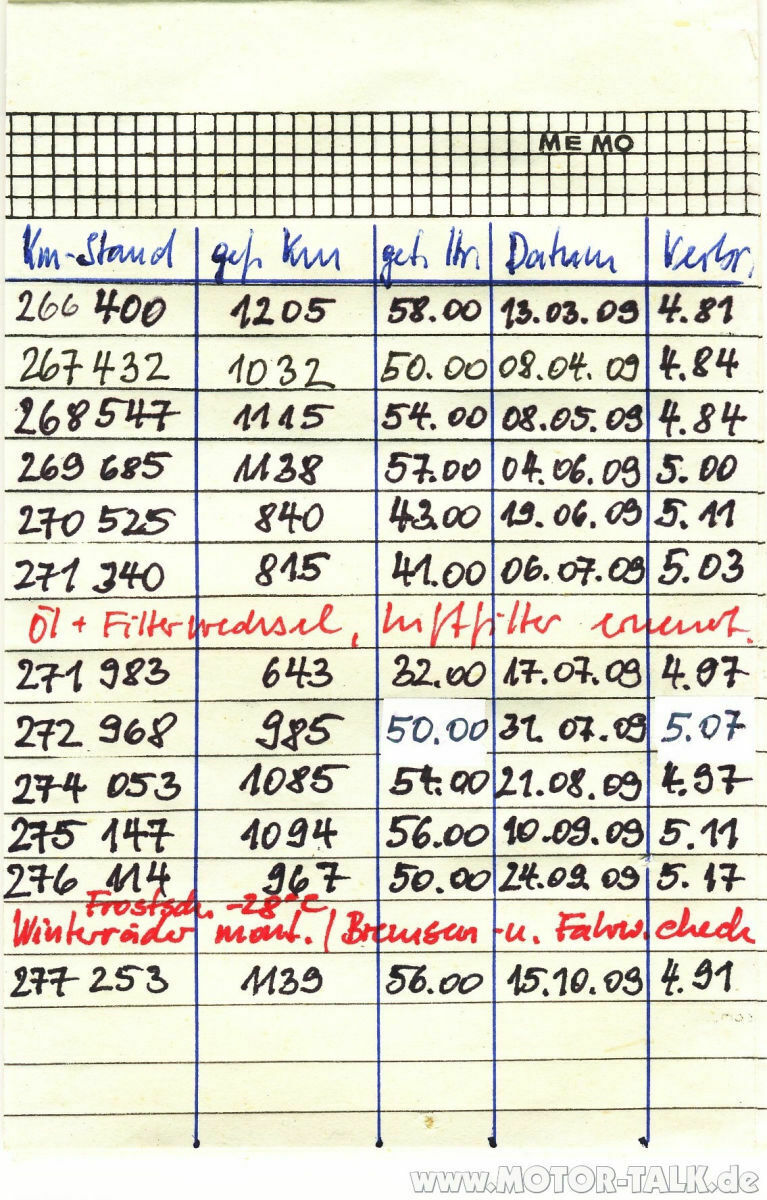 MEMO
Km-Stand gef. Km get. ltr. Datum Verbr.
266 400 1205 58.00 13.03.09 4.81
267 432 1032 50.00 08.04.09 4.84
268 547 1115 54.00 08.05.09 4.84
269 685 1138 57.00 04.06.09 5.00
270 525 840 43.00 19.06.09 5.11
271 340 815 41.00 06.07.09 5.03
Öl + Filterwechsel, Luftfilter erneut.
271 983 643 32.00 17.07.09 4.97
272 968 985 50.00 31.07.09 5.07
274 053 1085 54.00 21.08.09 4.97
275 147 1094 56.00 10.09.09 5.11
276 114 967 50.00 24.09.09 5.17
Frostsch. -28°C
Winterräder mont. / Bremsen -u. Fahrw. check
277 253 1139 56.00 15.10.09 4.91
www.MOTOR-TALK.de